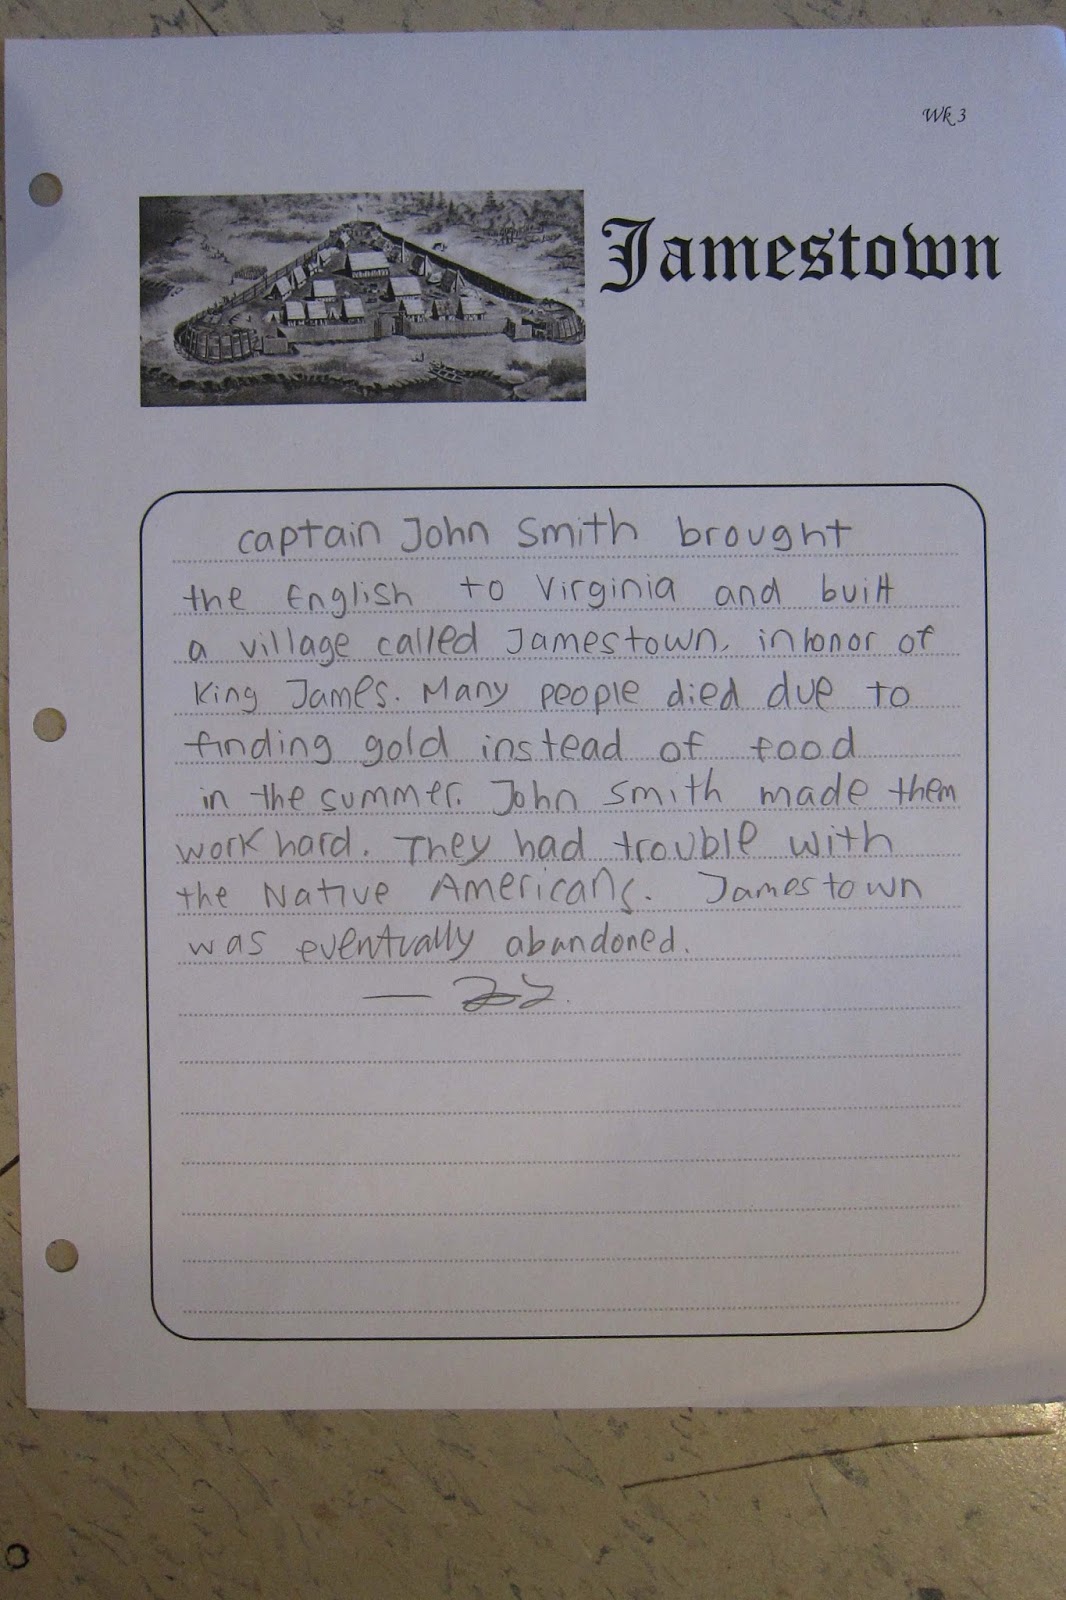 Wk 3
Jamestown
captain John Smith brought
the English to Virginia and built
a village called Jamestown, in honor of
King James. Many people died due to
finding gold instead of food
in the summer. John Smith made them
work hard. They had trouble with
the Native Americans. Jamestown
was eventually abandoned.